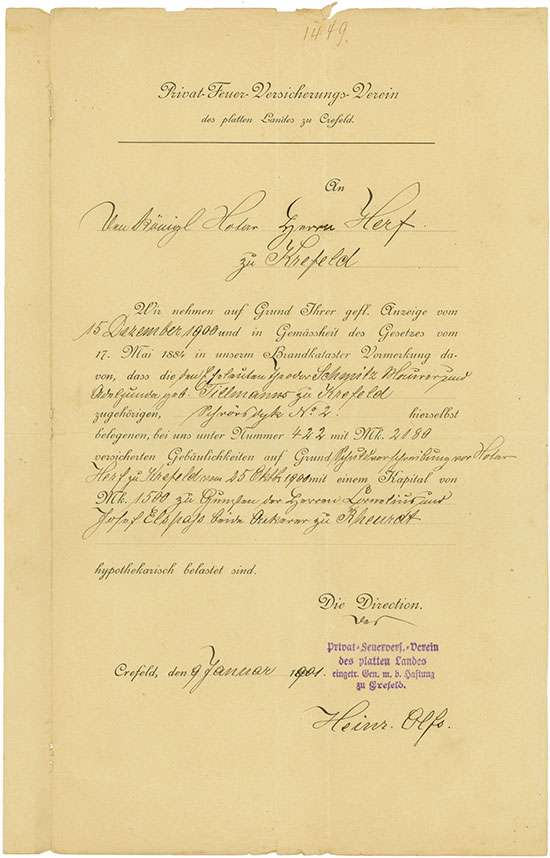 1449.
Privat-Feuer-Versicherungs-Verein
des platten Landes zu Crefeld.
An
Den Königl Notar Herrn Herf.
zu Krefeld
Wir nehmen auf Grund Ihrer gefl. Anzeige vom
15 Dezember 1900 und in Gemässheit des Gesetzes vom
17. Mai 1884 in unserm Brandkataster Vormerkung da-
von, dass die den Eheleuten Theodor Schmitz Maurer und
Adelgunde geb. Tillmanns zu Krefeld
zugehörigen, No 2. hierselbst
belegenen, bei uns unter Nummer 422 mit Mk. 2080
versicherten Gebäulichkeiten auf Grund Schuldverschreibung vor Notar
Herf zu Krefeld vom 25 Oktb. 1900 mit einem Kapital von
Mk. 1500 zu Gunsten der Herren Cornelius und
Josef Elspass beide Ackerer zu Rheurdt
hypothekarisch belastet sind.
Die Direction.
des
Privat-Feuervers.-Verein
des platten Landes
eingetr. Gen. m. b. Haftung
zu Crefeld.
Crefeld, den 9 Januar 1901.
Heinr. Olfs.